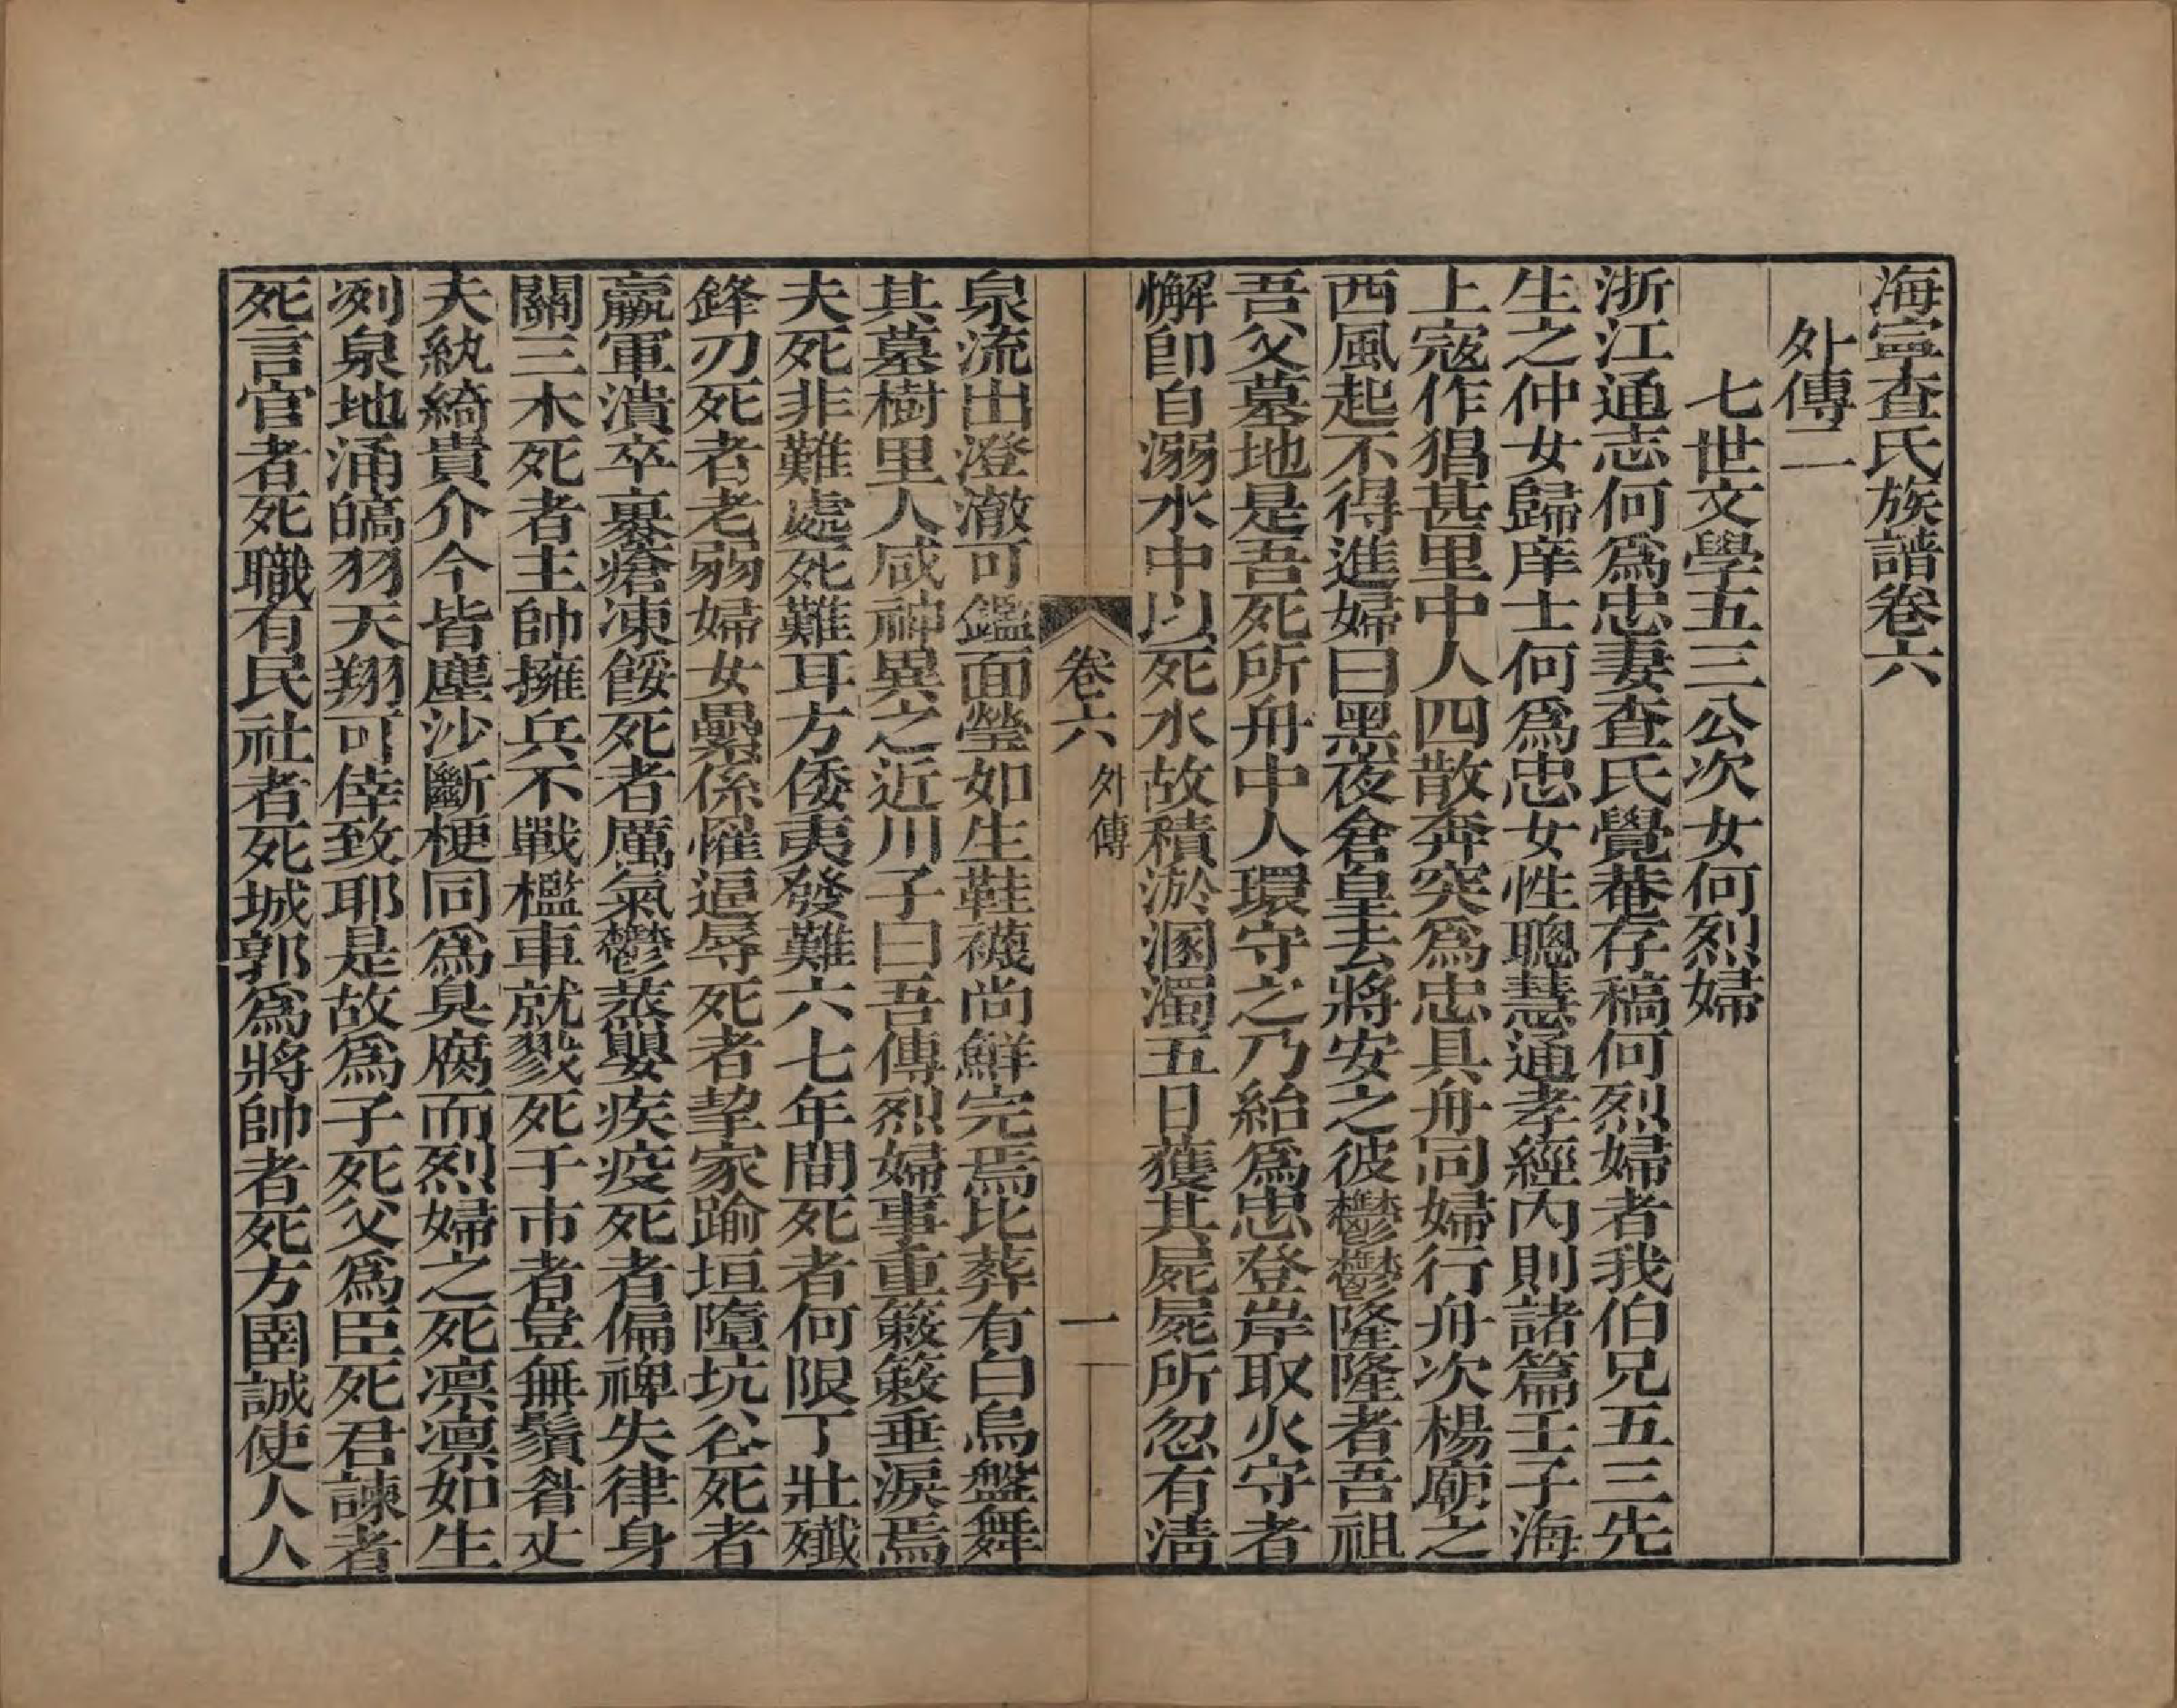 海寧查氏族譜卷六
外傳二
七世文學五三公次女何烈婦
浙江通志何爲忠妻查氏覺菴存稿何烈婦者我伯兄五三先
生之仲女歸庠士何爲忠女性聰慧通孝經內則諸篇壬子海
上寇作猖甚里中人四散奔突爲忠具舟同婦行舟次楊廟之
西風起不得進婦曰黑夜倉皇去將安之彼鬱鬱隆隆者吾祖
吾父墓地是吾死所舟中人環守之乃紿爲忠登岸取火守者
懈卽自溺水中以死水故積淤溷濁五日獲其屍屍所忽有淸
卷六 外傳 一
泉流出澄澈可鑑面瑩如生鞋襪尚鮮完焉比葬有白烏盤舞
其墓樹里人咸神異之近川子曰吾傳烈婦事重簌簌垂淚焉
夫死非難處死難耳方倭夷發難六七年間死者何限丁壯殲
鋒刃死者老弱婦女纍係懼逼辱死者挈家踰垣墮坑谷死者
羸軍潰卒裹瘡凍餒死者厲氣鬱蒸嬰疾疫死者偏裨失律身
關三木死者主帥擁兵不戰檻車就戮死于市者豈無鬚眉丈
夫紈綺貴介今皆塵沙斷梗同爲臭腐而烈婦之死凛凛如生
冽泉地涌皜羽天翔可倖致耶是故爲子死父爲臣死君諫者
死言官者死職有民社者死城郭爲將帥者死方圉誠使人人